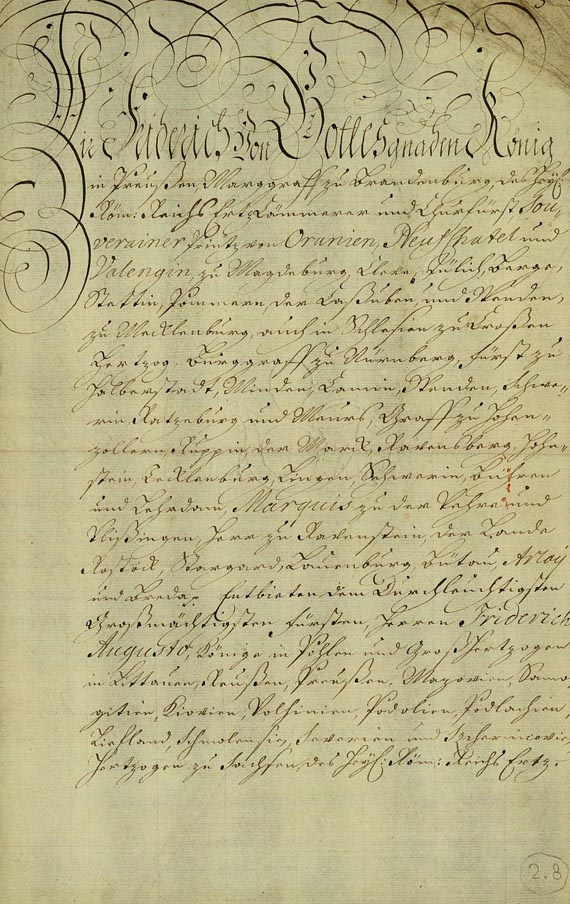 Wir Friderich von Gottes gnaden König
in Preußen, Marggraff zu Brandenburg, des Heyl:
Röm: Reichs Ertz Cammerer und Churfürst, Sou-
verainer Printz von Oranien, Neufchatel und
Valengin, zu Magdeburg, Cleve, Jülich, Berge,
Stettin, Pommern, der Caßuben, und Wenden,
zu Mecklenburg, auch in Schlesien zu Croßen
Hertzog, Burggraff zu Nürnberg, Fürst zu
Halberstadt, Minden, Camin, Wenden, Schwe-
rin, Ratzeburg und Meurs, Graff zu Hohen-
zollern, Ruppin, der Marck, Ravensberg, Hohn-
stein, Tecklenburg, Lingen, Schwerin, Bühren
und Lehrdam, Marquis zu der Vehre und
Vlißingen, Herr zu Ravenstein, der Lande
Rostock, Stargard, Lauenburg, Bütau, Arlay
und Breda. Entbieten dem Durchleuchtigsten
Großmächtigsten Fürsten, Herren Friderich
Augusto, Könige in Pohlen und Großhertzogen
in Littauen, Reußen, Preußen, Mazovien, Samo-
gitien, Kiovien, Volhinien, Podolien, Podlachien,
Liefland, Schmolensien, Severien und Tschernicovien
Hertzogen zu Sachsen, des Heyl: Röm: Reichs Ertz-
2.8